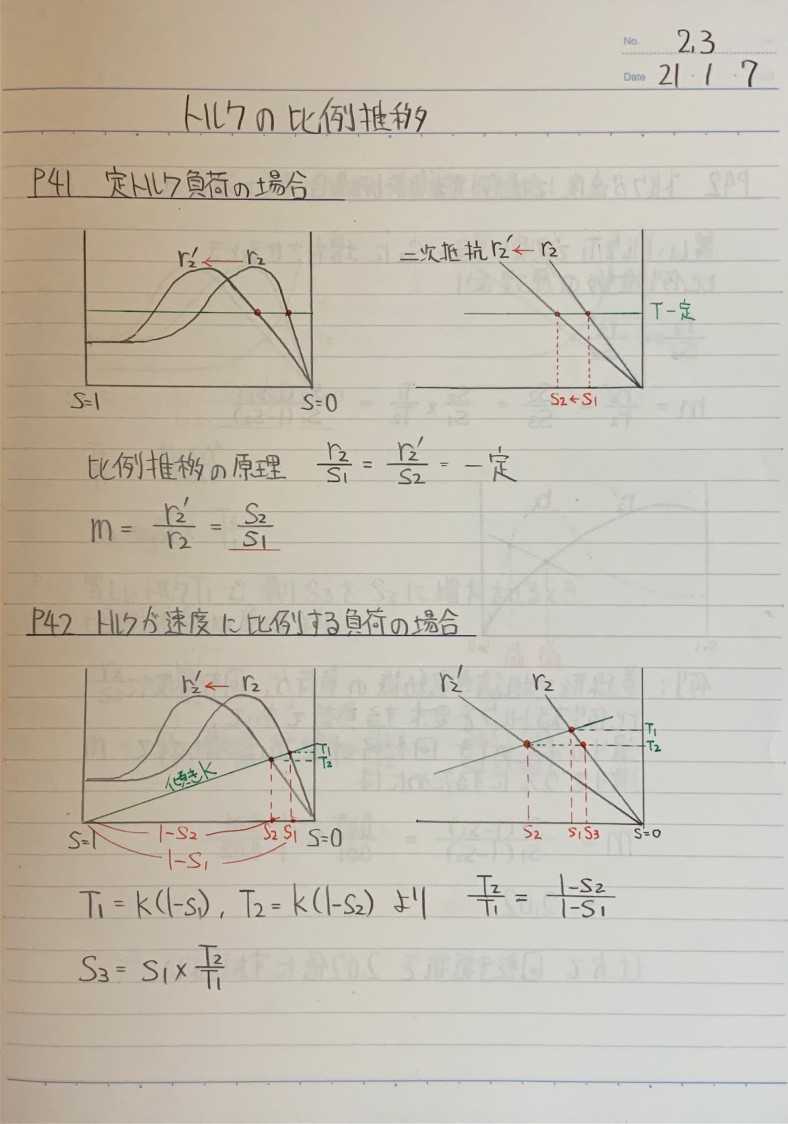 No. 2.3
Date 21・1・7
トルクの比例推移
P41 定トルク負荷の場合
r₂'←r₂
S=1 S=0
二次抵抗r₂'←r₂
T一定
S₂←S₁
比例推移の原理 r₂/S₁ = r₂'/S₂ = 一定
m = r₂'/r₂ = S₂/S₁
P42 トルクが速度に比例する負荷の場合
r₂'←r₂
T₁
T₂
傾きk
S=1 1-S₂ S₂ S₁ S=0
1-S₁
r₂' r₂
T₁
T₂
S₂ S₁ S₃ S=0
T₁ = k(1-S₁), T₂ = k(1-S₂) より T₂/T₁ = 1-S₂/1-S₁
S₃ = S₁ × T₂/T₁